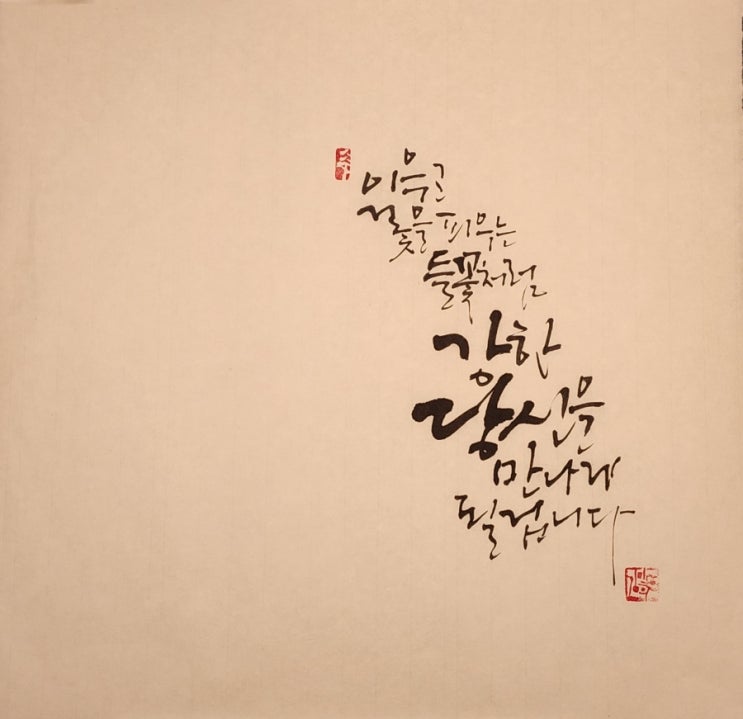 이윽고
꽃을 피우는
들꽃처럼
강한
당신을
만나게
될겁니다